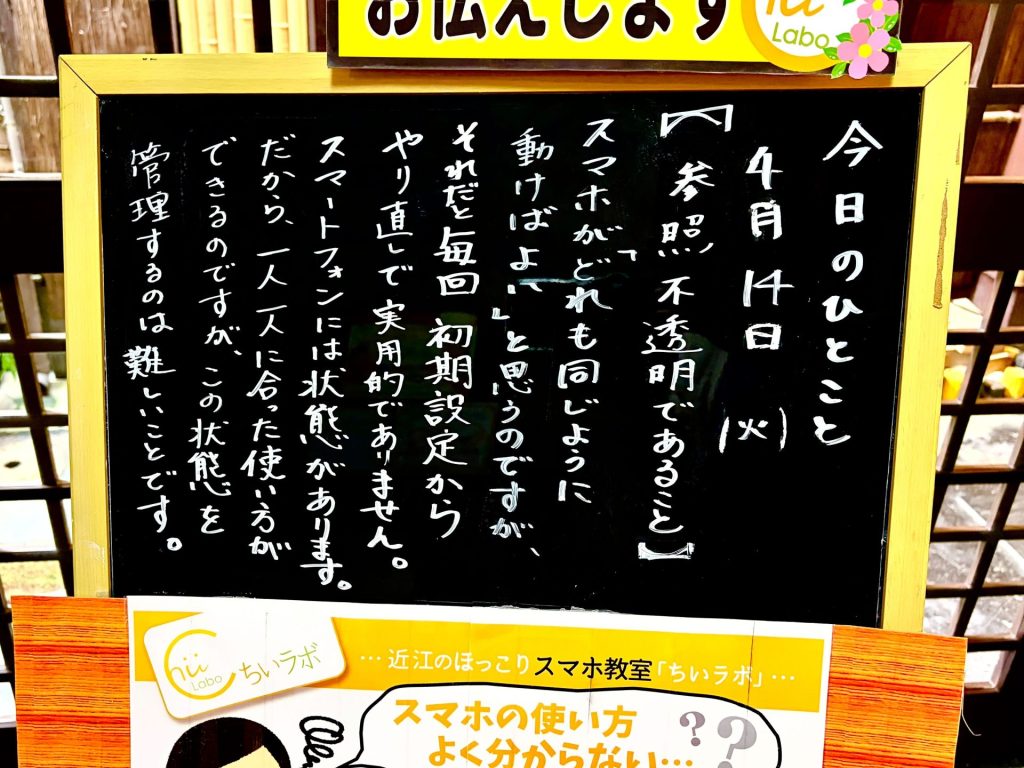 お伝えします
hii
Labo
今日のひとこと
4月14日(火)
【参照不透明であること】
「スマホがどれも同じように
動けばよい」と思うのですが、
それだと毎回初期設定から
やり直しで実用的でありません。
スマートフォンには状態があります。
だから、一人一人に合った使い方が
できるのですが、この状態を
管理するのは難しいことです。
Chii
Labo
ちいラボ
…近江のほっこりスマホ教室「ちいラボ」…
スマホの使い方
よく分からない…
? ?